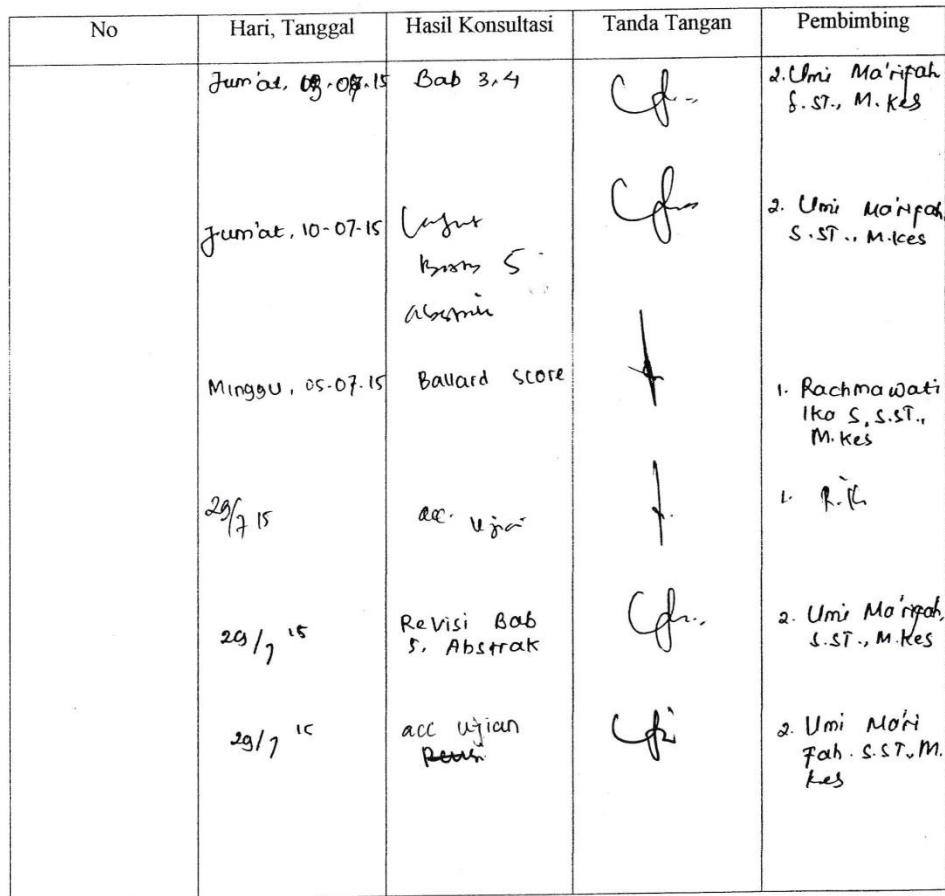 No Hari, Tanggal Hasil Konsultasi Tanda Tangan Pembimbing
Jum'at, 15 Bab 3,4 2. Umi Ma'rifah
S.ST., M.Kes
Jum'at, 10-07-15 2. Umi Ma'rifah,
S.ST., M.Kes
5
Minggu, 05-07-15 Ballard score 1. Rachmawati
Ika S, S.ST.,
M.Kes
29/7 15 acc. Ujian 1.
29/7 15 Revisi Bab 2. Umi Ma'rifah,
5, Abstrak S.ST., M.Kes
29/7 15 acc Ujian 2. Umi Ma'ri
fah. S.ST., M.
Kes